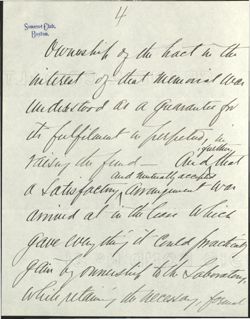 4
Somerset Club,
Boston.
Ownership of the tract in the
interest of that Memorial was
understood as a guarantee for
its fulfilment in perpetuity, in
raising the fund — And that
further
and mutually accepted
a satisfactory arrangement was
arrived at in the lease which
gave everything it could practicably
gain by ownership to the Laboratory,
while retaining the necessary formal